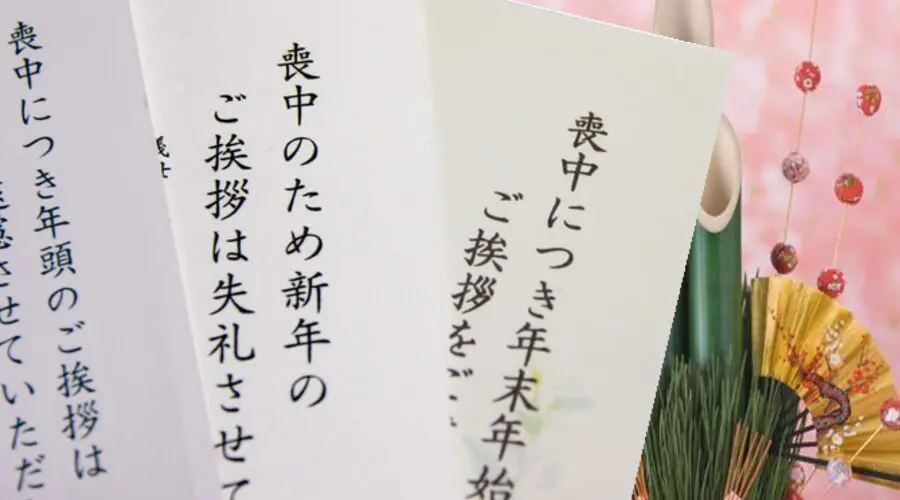 喪中につき年末年始
ご挨拶をご
喪中のため新年の
ご挨拶は失礼させて
喪中につき年頭のご挨拶は
させていただ